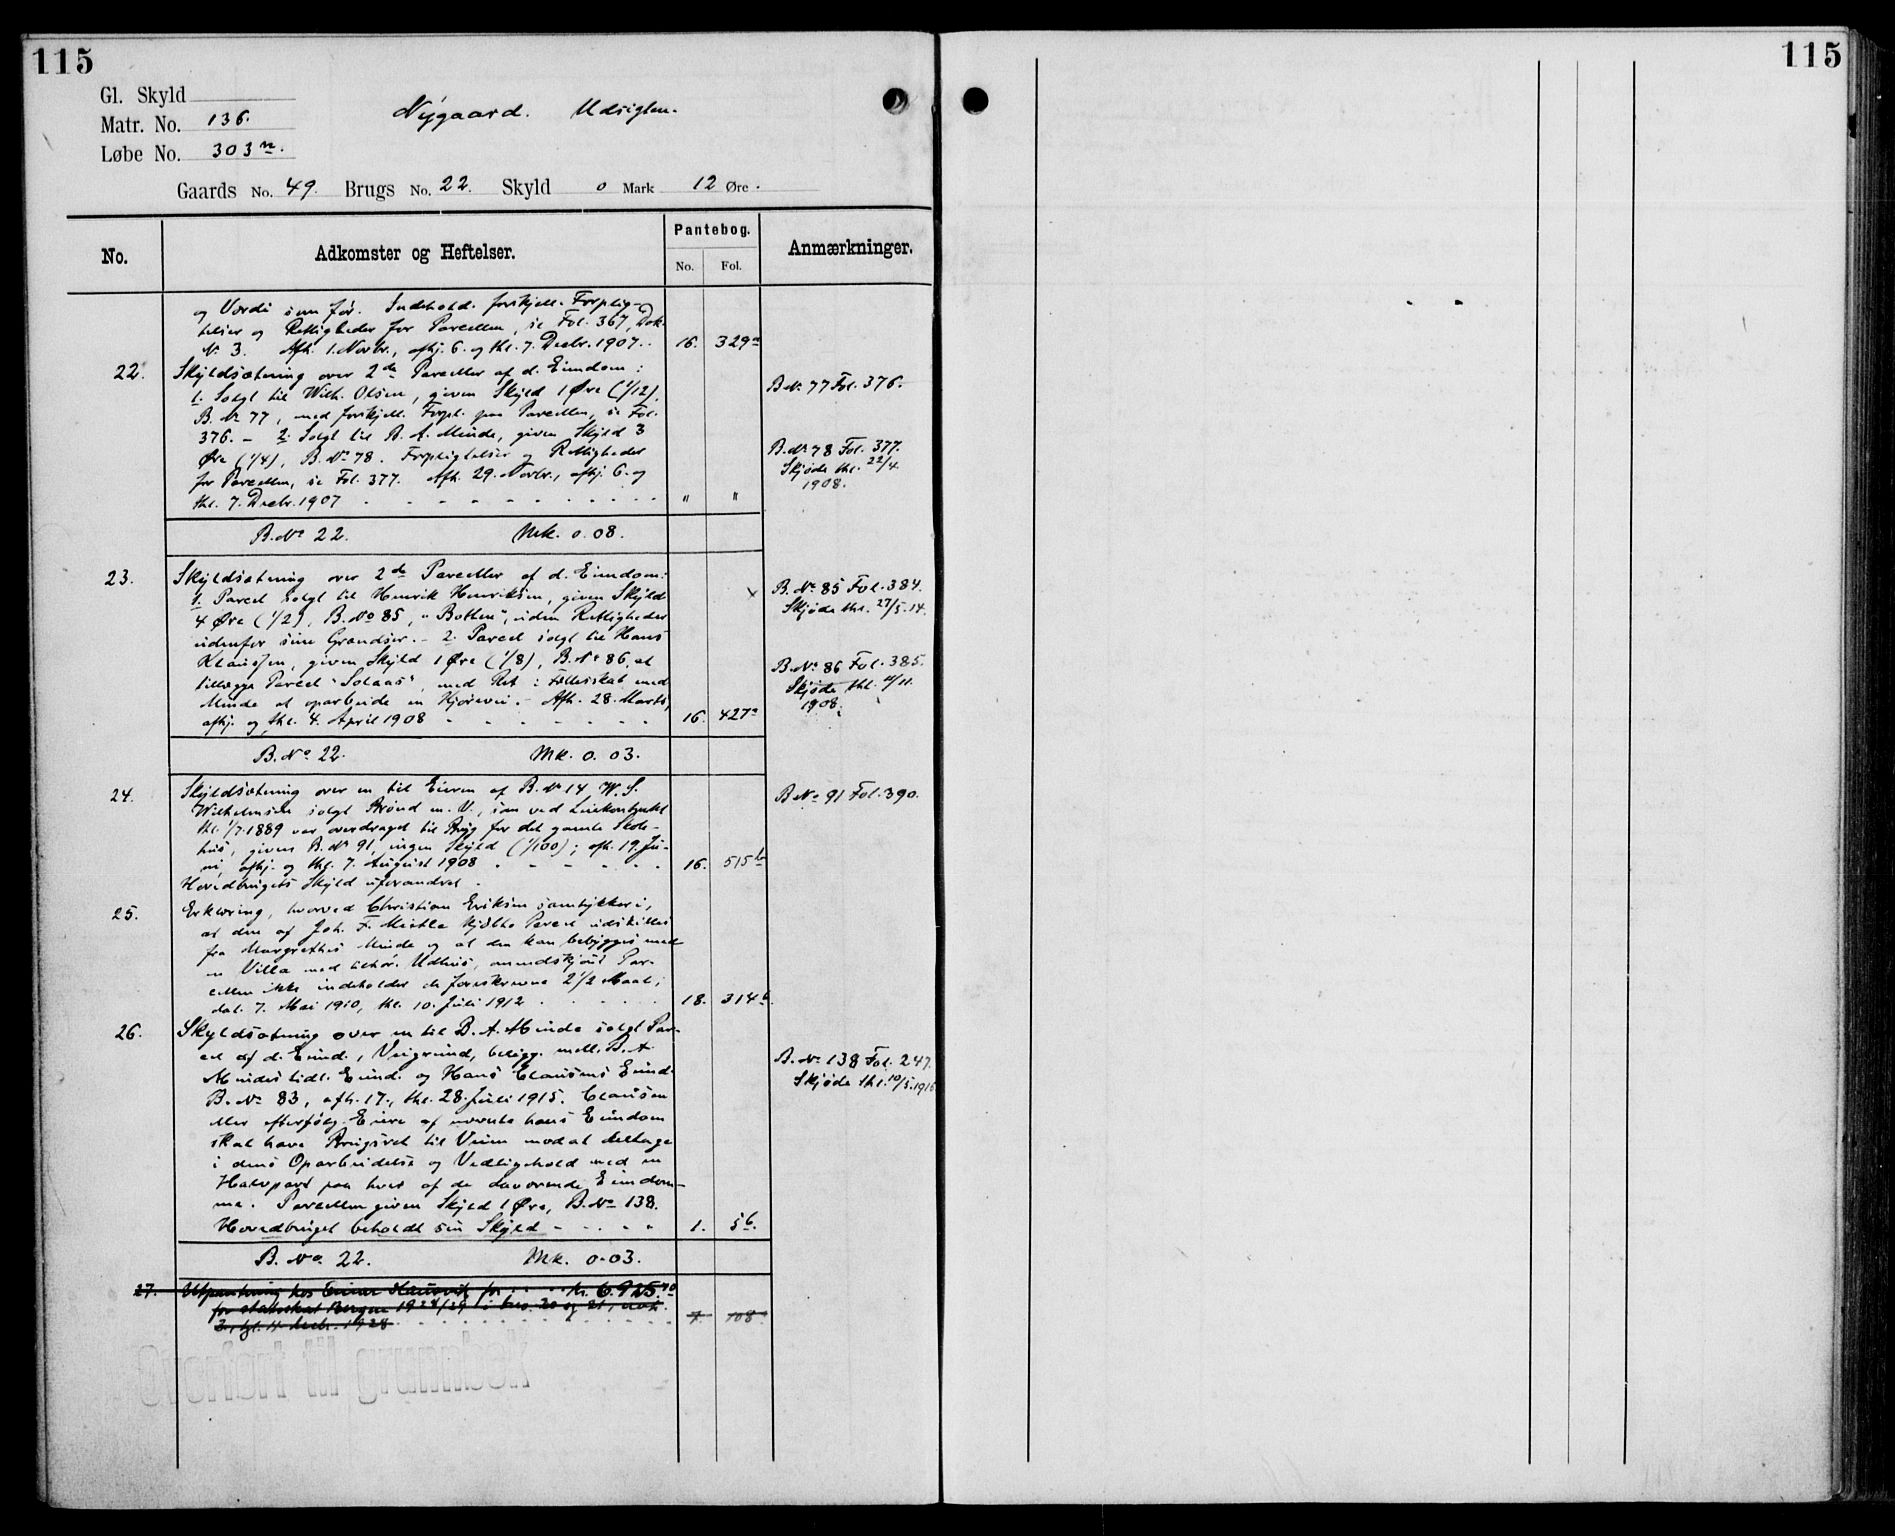 115
115
Gl. Skyld
Matr. No. 136.
Løbe No. 303 n.
Nygaard. Udsigten.
Gaards No. 49. Brugs No. 22. Skyld 0 Mark 12 Øre.
No. Adkomster og Heftelser. Pantebog. No. Fol. Anmærkninger.
og Værdi som før. Indehold. forskjell. Forplig-
telser og Rettigheder for Parcellen, se Fol. 367, Dok.
No 3. Afh. 1. Novbr., afhj. 6. og thl. 7. Decbr. 1907. 16. 329 a
22. Skyldsætning over 2de Parceller af d. Eiendom:
1. Solgt til Wilh. Olsen, given Skyld 1 Øre (1/12), B No 77 Fol. 376.
B. No 77, med forskjell. Forpl. paa Parcellen, se Fol.
376. – 2. Solgt til B. A. Minde, given Skyld 3
Øre (1/4), B. No 78. Forpligtelser og Rettigheder B. No 78 Fol. 377.
for Parcellen, se Fol. 377. Afh. 29. Novbr., afhj. 6. og Skjøde thl. 22/4
thl. 7. Decbr. 1907 " " 1908.
B. No 22. Mk. 0.08.
23. Skyldsætning over 2de Parceller af d. Eiendom:
1. Parcel solgt til Henrik Henriksen, given Skyld B. No 85 Fol. 384.
4 Øre (1/2), B. No 85, "Botten", uden Rettigheder Skjøde thl. 27/5.14.
udenfor sine Grændser. – 2. Parcel solgt til Hans
Klaussen, given Skyld 1 Øre (1/8), B. No 86, at B. No 86 Fol. 385.
tillægges Parcel "Solaas", med Ret i Fællesskab med Skjøde thl. 11/11.
Minde at oparbeide en Kjørevei. – Afh. 28. Marts, 1908.
afhj. og thl. 4. April 1908 16. 427 a
B. No 22. Mk. 0.03.
24. Skyldsætning over en til Eieren af B. No 14 W. S. B No 91 Fol. 390.
Wilhelmsen solgt Brønd m. V., som ved Leiekontrakt
thl. 1/7.1889 var overdraget til Brug for det gamle Skole-
hus, given B. No 91, ingen Skyld (1/100); afh. 19. Ju-
ni, afhj. og thl. 7. August 1908 16. 515 b
Hovedbrugets Skyld uforandret.
25. Erklæring, hvorved Christian Eriksen samtykker i,
at den af Joh. F. kjøbte Parcel udskilles
fra Margrethes Minde og at den kan bebygges med
en Villa med tilhør. Udhus, uanseet Par-
cellen ikke indeholder de foreskrevne 2 1/2 Maal;
dat. 7. Mai 1910, thl. 10. Juli 1912 18. 314 b
26. Skyldsætning over en til B. A. Minde solgt Par-
cel af d. Eiend., Veigrund, beligg. mell. B. A. B. No 138 Fol. 247.
Mindes tidl. Eiend. og Hans Clausens Eiend. Skjøde thl. 10/5.1916
B. No 83, afh. 17., thl. 28. Juli 1915. Clausen
eller efterfølg. Eiere af nævnte hans Eiendom
skal have Brugsret til Veien mod at deltage
i dens Oparbeidelse og Vedligehold med en
Halvpart paa hver af de daværende Eiendom-
me. Parcellen given Skyld 1 Øre, B. No 138.
Hovedbruget beholdt sin Skyld 1. 5 b.
B. No 22. Mk. 0.03.
27. Utpantning hos Einar for kr. 6.925.
for statsskat Bergen 1928/29 i bno. 20 og 21,
tgl. 11 decbr. 1928 7. 108
Overført til grunnbok